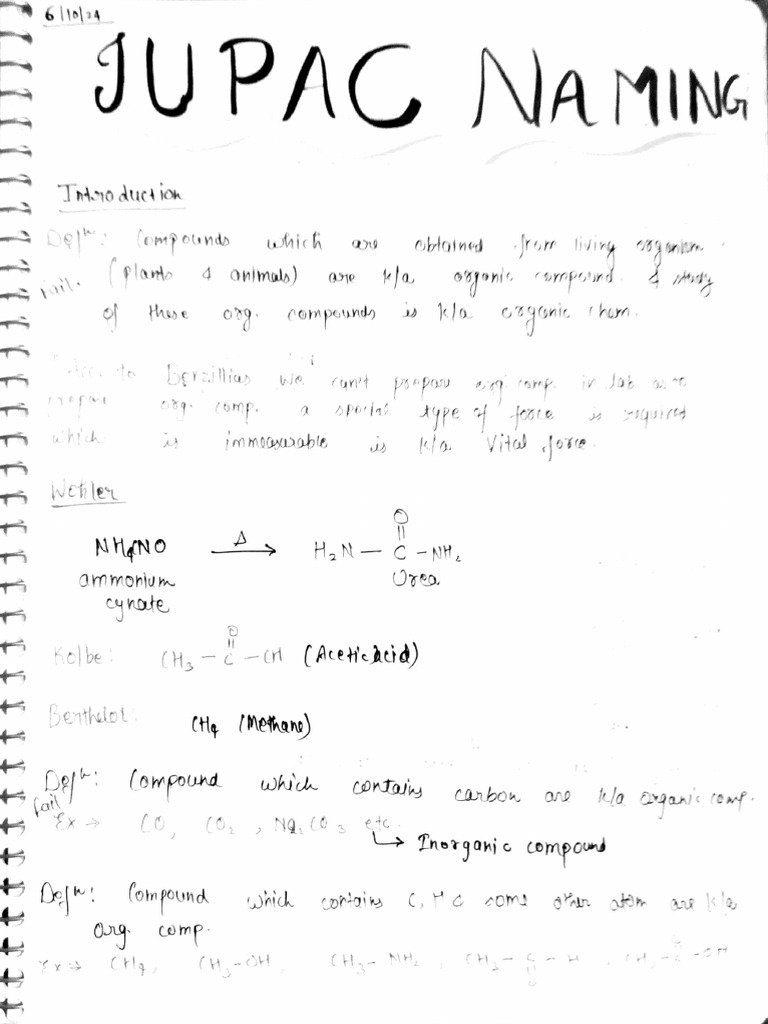 6/10/24
IUPAC NAMING
Introduction
Defn: Compounds which are obtained from living organism.
fail. (plants & animals) are k/a organic compound. & study
of these org. compounds is k/a organic chem.
Acc. to Berzillias we can't prepare org. comp. in lab
prepare org. comp. a special type of force is required
which is immeasurable is k/a Vital force.
Wohler
O
NH4NO Δ H2N — C — NH2
ammonium Urea
cynate
O
Kolbe: CH3 — C — CH (Acetic acid)
Berthelot: CH4 (Methane)
Defn: Compound which contains carbon are k/a organic comp.
fail
Ex → CO, CO2, Na2CO3 etc.
Inorganic compound
Defn: Compound which contains C, H & some other atom are k/a
org. comp.
Ex → CH4, CH3-OH, CH3-NH2,